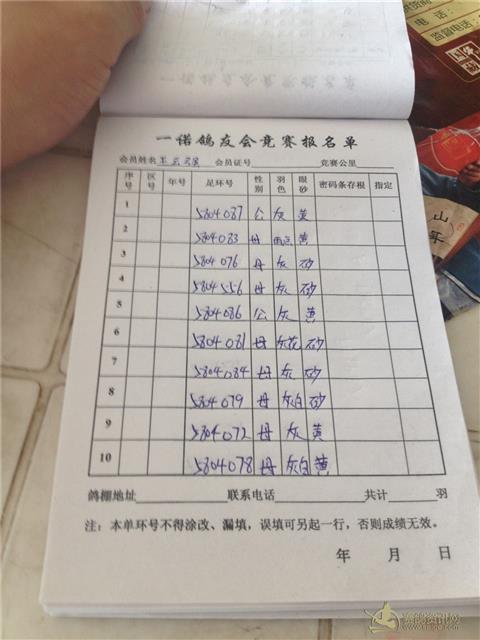 一诺鸽友会竞赛报名单
会员姓名 会员证号 竞赛公里
序号 区号 年号 足环号 性别 羽色 眼砂 密码条存根 指定
1 5804087 公 灰 黄
2 5804083 母 雨点 黄
3 5804076 母 灰 砂
4 5804556 母 灰 砂
5 5804086 公 灰 黄
6 5804081 母 灰花 砂
7 5804084 母 灰 砂
8 5804079 母 灰白 砂
9 5804072 母 灰 黄
10 5804078 母 灰白 黄
鸽棚地址 联系电话 共计 羽
注：本单环号不得涂改、漏填，误填可另起一行，否则成绩无效。
年 月 日
电话：
监督电话
山